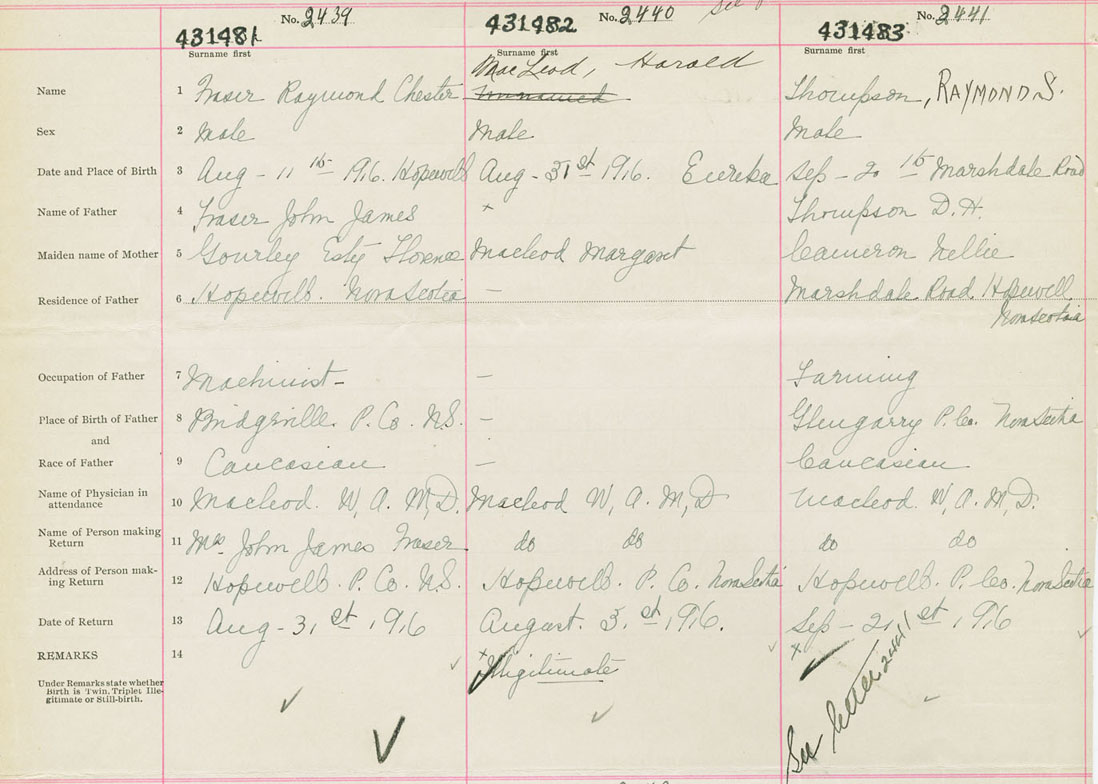 No. 2439 No. 2440 See No. 2441
431481 431482 431483
Surname first Surname first Surname first
MacLeod, Harold
Name 1 Fraser Raymond Chester Unnamed Thompson, RAYMOND S.
Sex 2 Male Male Male
Date and Place of Birth 3 Aug - 11th 1916. Hopewell Aug - 31st 1916. Eureka Sep - 20th Marshdale Road
Name of Father 4 Fraser John James × Thompson D. H.
Maiden name of Mother 5 Gourley Florence Macleod Margaret Cameron Nellie
Residence of Father 6 Hopewell. Nova Scotia — Marshdale Road Hopewell
Nova Scotia
Occupation of Father 7 Machinist - — Farming
Place of Birth of Father 8 Bridgeville. P. Co. N.S. — Glengarry P. Co. Nova Scotia
and
Race of Father 9 Caucasian — Caucasian
Name of Physician in
attendance 10 Macleod. W. A. M,D. Macleod W, A. M,D Macleod. W, A. M,D.
Name of Person making
Return 11 Mrs John James Fraser do do do do
Address of Person mak-
ing Return 12 Hopewell. P. Co. N.S. Hopewell. P. Co. Nova Scotia Hopewell. P. Co. Nova Scotia
Date of Return 13 Aug - 31st, 1916 August. 31st, 1916. Sep - 21st, 1916
REMARKS 14 × Illigitimate ×
Under Remarks state whether
Birth is Twin, Triplet Ille-
gitimate or Still-birth.
See letter 2441